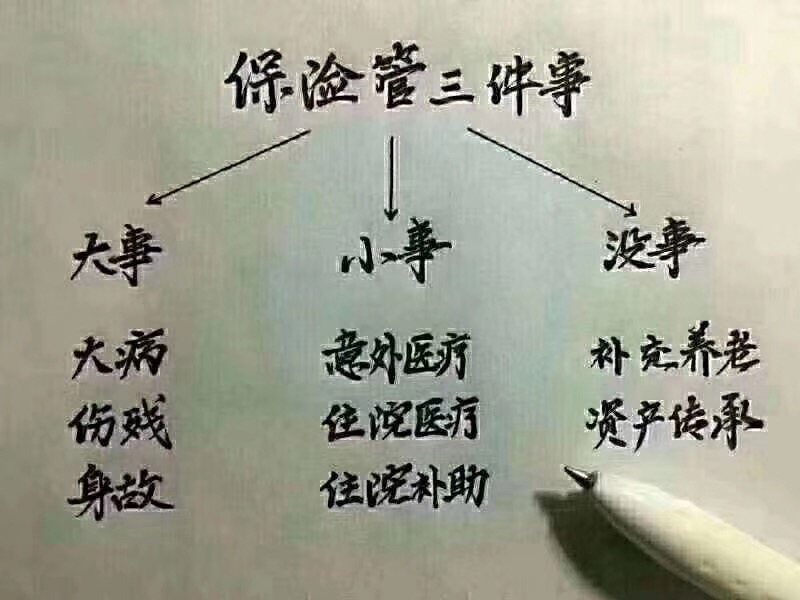 保险管三件事
大事 小事 没事
大病 意外医疗 补充养老
伤残 住院医疗 资产传承
身故 住院补助